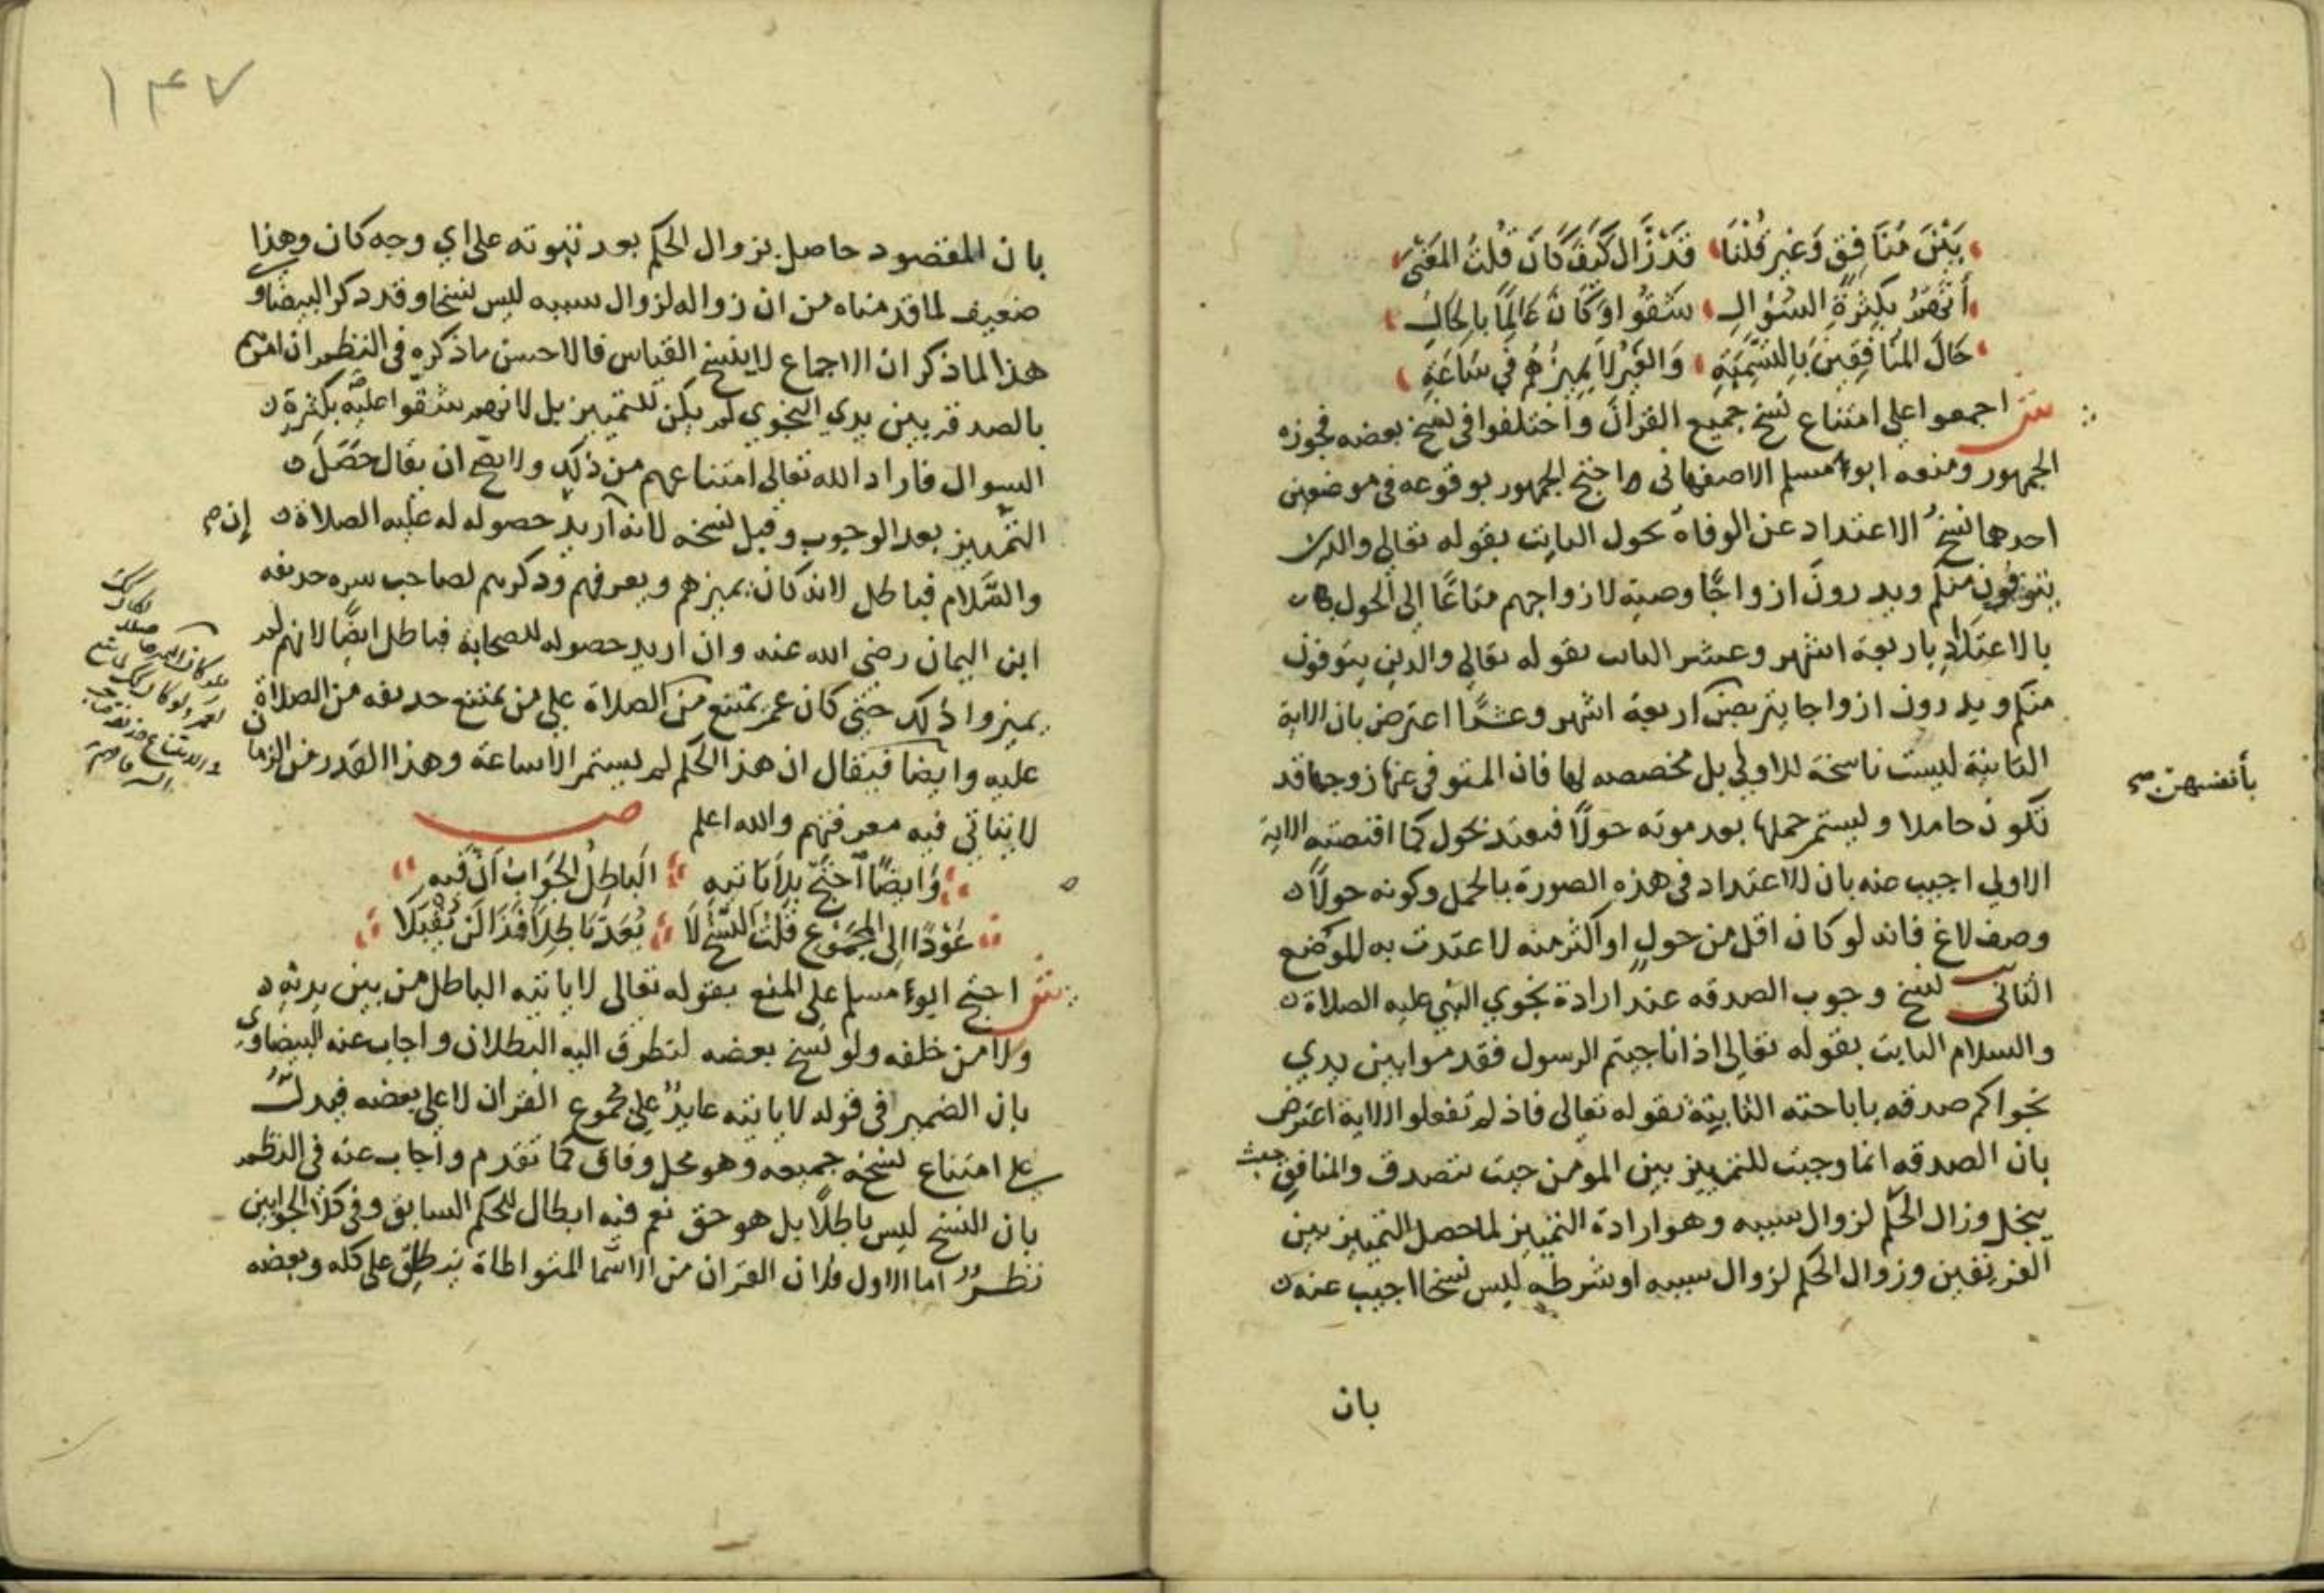 بين منافق وغير قلنا قد زال كيف كان قلت المعنى
أنهم بكثرة السؤال شقوا وكان عالما بالحال
حال المنافقين بالتسمية والغير لا يميزهم في ساعة
ش اجمعوا على امتناع نسخ جميع القرآن واختلفوا في نسخ بعضه فجوزه
الجمهور ومنعه ابو مسلم الاصفهاني واحتج الجمهور بوقوعه في موضعين
احدهما نسخ الاعتداد عن الوفاة بحول الثابت بقوله تعالى والذين
يتوفون منكم ويذرون ازواجًا وصية لازواجهم متاعًا إلى الحول
بالاعتداد باربعة اشهر وعشر الثابت بقوله تعالى والذين يتوفون
منكم ويذرون ازواجا يتربصن اربعة اشهر وعشرًا اعترض بان الاية
بأنفسهن صح
الثانية ليست ناسخة للاولى بل مخصصه لها فان المتوفى عنها زوجها قد
تكون حاملا ويستمر حملها بعد موته حولًا فتعتد بحول كما اقتضته الاية
الاولى اجيب عنه بان الاعتداد في هذه الصورة بالحمل وكونه حولًا
وصف لاغ فانه لو كان اقل من حول او اكثر منه لاعتدت به الموضع
الثاني نسخ وجوب الصدقه عند ارادة نجوى النبي عليه الصلاة
والسلام الثابت بقوله تعالى اذا ناجيتم الرسول فقدموا بين يدي
نجواكم صدقه باباحته الثابتة بقوله تعالى فاذ لم تفعلوا الاية اعترض
بان الصدقه انما وجبت للتمييز بين المومن حيث يتصدق والمنافق حيث
يبخل وزال الحكم لزوال سببه وهو ارادة التمييز لما حصل التمييز بين
الفريقين وزوال الحكم لزوال سببه او شرطه ليس نسخا اجيب عنه
بان
١٤٧
بان المقصود حاصل بزوال الحكم بعد ثبوته على اي وجه كان وهذا
ضعيف لما قدمناه من ان زواله لزوال سببه ليس نسخا وقد ذكر البيضاوي
هذا لما ذكر ان الاجماع لا ينسخ القياس فالاحسن ما ذكره في النظم ان امرهم
بالصدقة بين يدي النجوى لم يكن للتمييز بل لانهم شقوا عليه بكثرة
السوال فاراد الله تعالى امتناعهم من ذلك ولا يصح ان يقال حصل
التمييز بعد الوجوب وقبل نسخه لانه أريد حصوله له عليه الصلاة
إن
والسّلام فباطل لانه كان يميزهم ويعرفهم وذكرهم لصاحب سره حذيفه
ابن اليمان رضي الله عنه وان اريد حصوله للصحابة فباطل ايضًا لانهم لم
يميزوا ذلك حتى كان عمر يمتنع من الصلاة على من يمتنع حذيفه من الصلاة
عليه وايضا فيقال ان هذا الحكم لم يستمر الا ساعة وهذا القدر من الزمان
لا يتاتى فيه معرفتهم والله اعلم ص
وايضًا احتج بلا ياتيه الباطل الجواب أن فيه
عودًا إلى المجموع قلت النسخ لا يعد باطلًا فذا لن يقبلا
ش احتج ابو مسلم على المنع بقوله تعالى لا ياتيه الباطل من بين يديه
ولا من خلفه ولو نسخ بعضه لتطرق اليه البطلان واجاب عنه البيضاوي
بان الضمير في قوله لا ياتيه عايد على مجموع القران لا على بعضه فيدل
على امتناع نسخه جميعه وهو محل وفاق كما تقدم واجاب عنه في النظم
بان النسخ ليس باطلًا بل هو حق نعم فيه ابطال للحكم السابق وفي كلا الجوابين
نظر اما الاول فلان القران من الاسما المتواطاة ينطلق على كله وبعضه